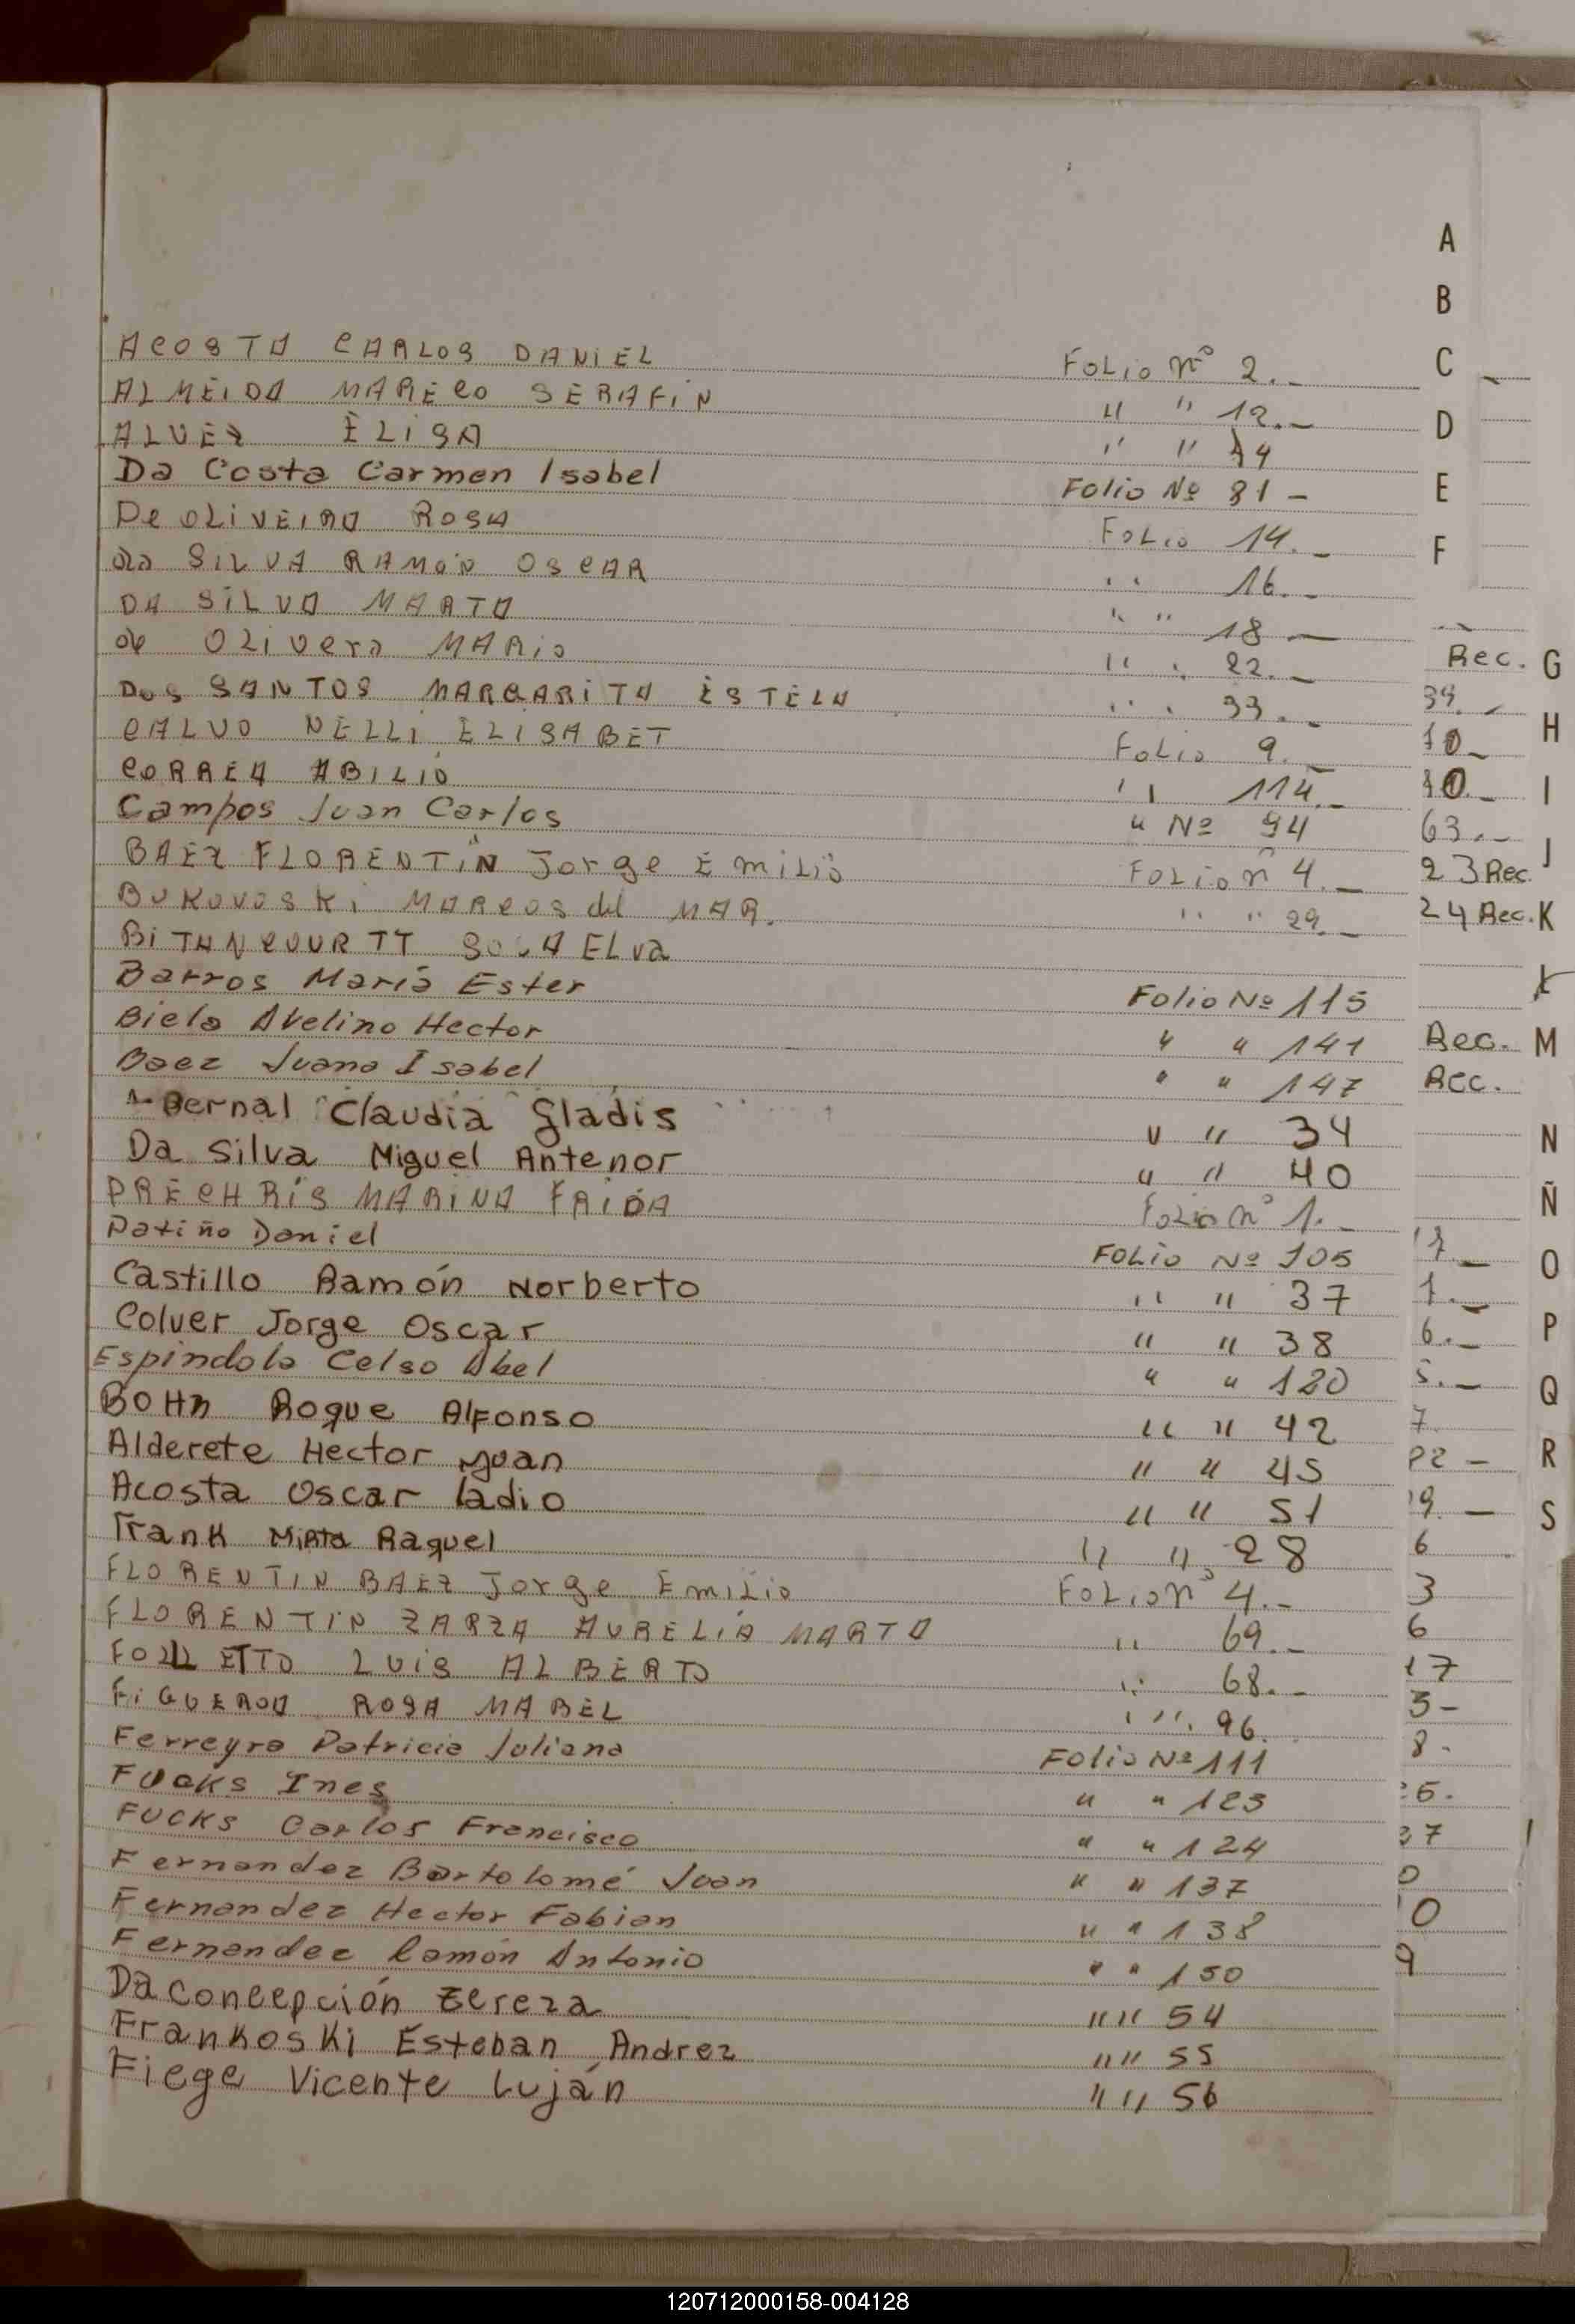 ACOSTA CARLOS DANIEL Folio nº 2.-
ALMEIDA MARECO SERAFIN " " 12.-
ALVEZ ELISA " "
Da Costa Carmen Isabel Folio Nº 81-
De OLIVEIRA ROSA Folio 14.-
da SILVA RAMÓN OSCAR " 16.-
DA SILVA MARTA " " 18-
de Olivera MARIO " " 22.-
Dos SANTOS MARGARITA ESTELA " " 33.-
CALVO NELLI ELISABET Folio 9.-
CORREA ABILIO " 114.-
Campos Juan Carlos " Nº 94
BAEZ FLORENTIN Jorge EMILIO Folio nº 4.-
BUKOVOSKI MARCOS del MAR. " " 29.-
BITANCOURTT ELVA
Barros María Ester Folio Nº 115
Biela Avelino Hector " " 141
Baez Juana Isabel " " 147
Bernal Claudia Gladis " " 34
Da Silva Miguel Antenor " " 40
PRECHRIS MARINA FRIDA Folio nº 1.-
Patiño Daniel Folio Nº 105
Castillo Ramón Norberto " " 37
Colver Jorge Oscar " " 38
Espindola Celso Abel " " 120
BOHn Roque Alfonso " " 42
Alderete Hector Juan " " 45
Acosta Oscar Ladio " " 51
Frank Mirta Raquel " " 28
FLORENTIN BAEZ Jorge EMILIO Folio nº 4.-
FLORENTIN ZARZA AURELIA MARTA " 69.-
FOLLETTO LUIS ALBERTO " 68.-
FIGUEROA ROSA MABEL " " 96.
Ferreyra Patricia Juliana Folio Nº 111
FUCKS Ines " " 123
FUCKS Carlos Francisco " " 124
Fernandez Bartolomé Juan " " 137
Fernandez Hector Fabian " " 138
Fernandez Ramón Antonio " " 150
Da Concepción Tereza " " 54
Frankoski Esteban Andrez " " 55
Fiege Vicente Luján " " 56
A
B
C
D
E
F
Rec. G
39.-
H
10-
10.- I
63.-
J
23 Rec.
24 Rec. K
Rec. M
Rec.
N
Ñ
O
P
6.-
5.-
Q
7
R
S
6
3
6
17
3-
8.
0
9
120712000158-004128